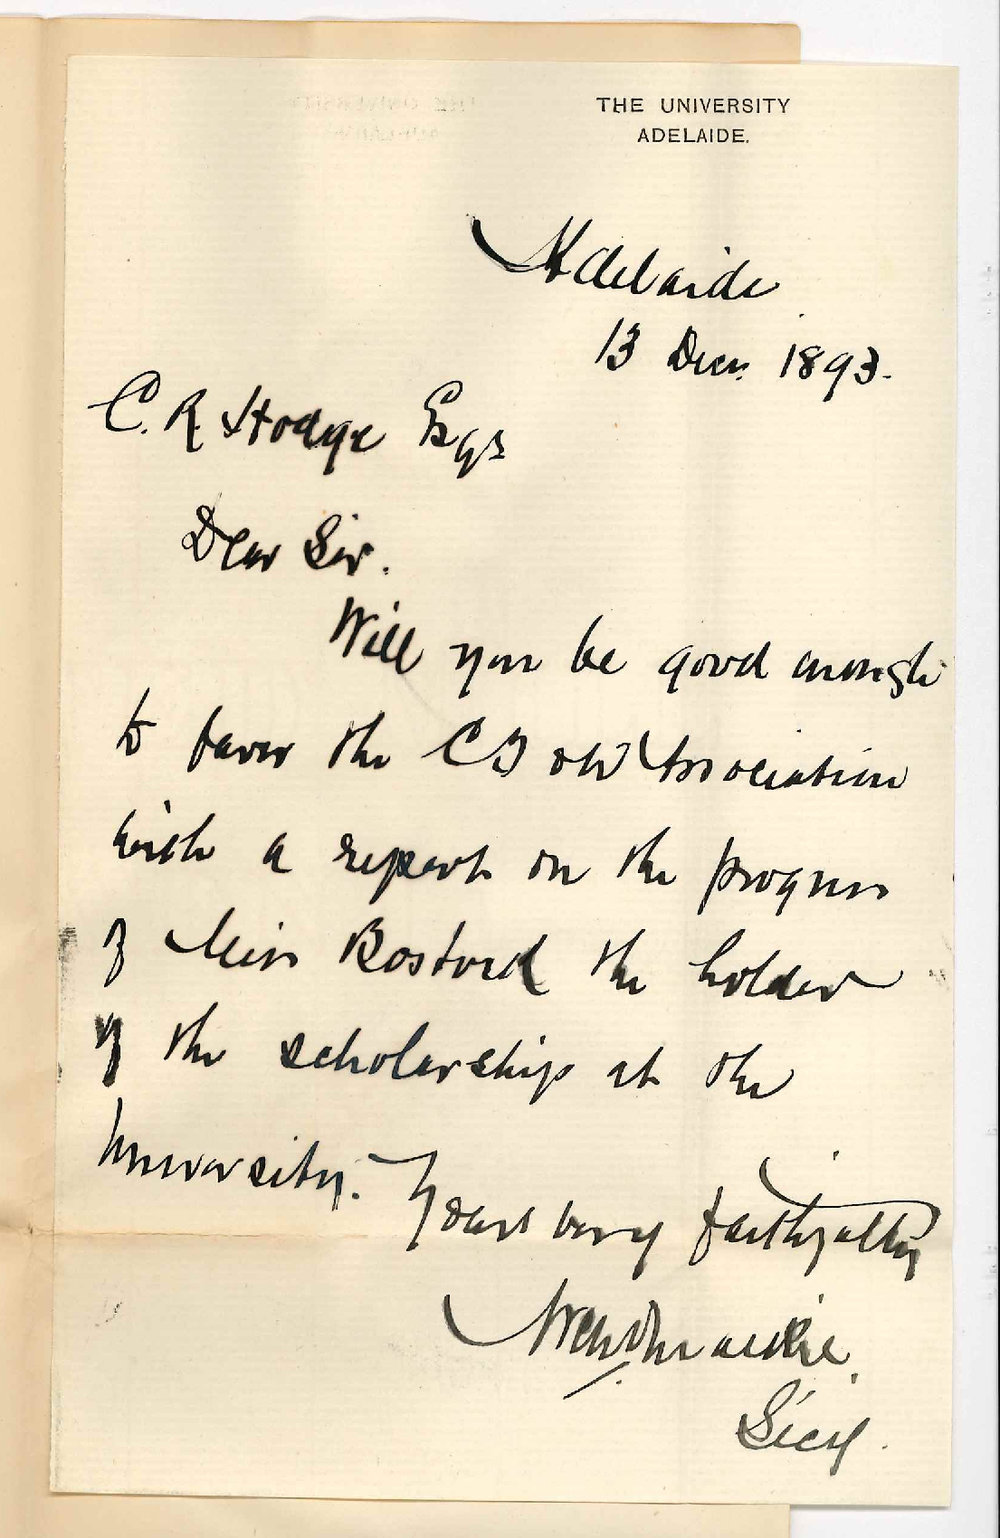 THE UNIVERSITY
ADELAIDE.
Adelaide
13 Decr. 1893.
C. R Hodge Esqr
Dear Sir.
Will you be good enough
to favor the Association
with a report on the progress
of Miss the holder
of the scholarship at the
University.
Yours very faithfully
Secy.